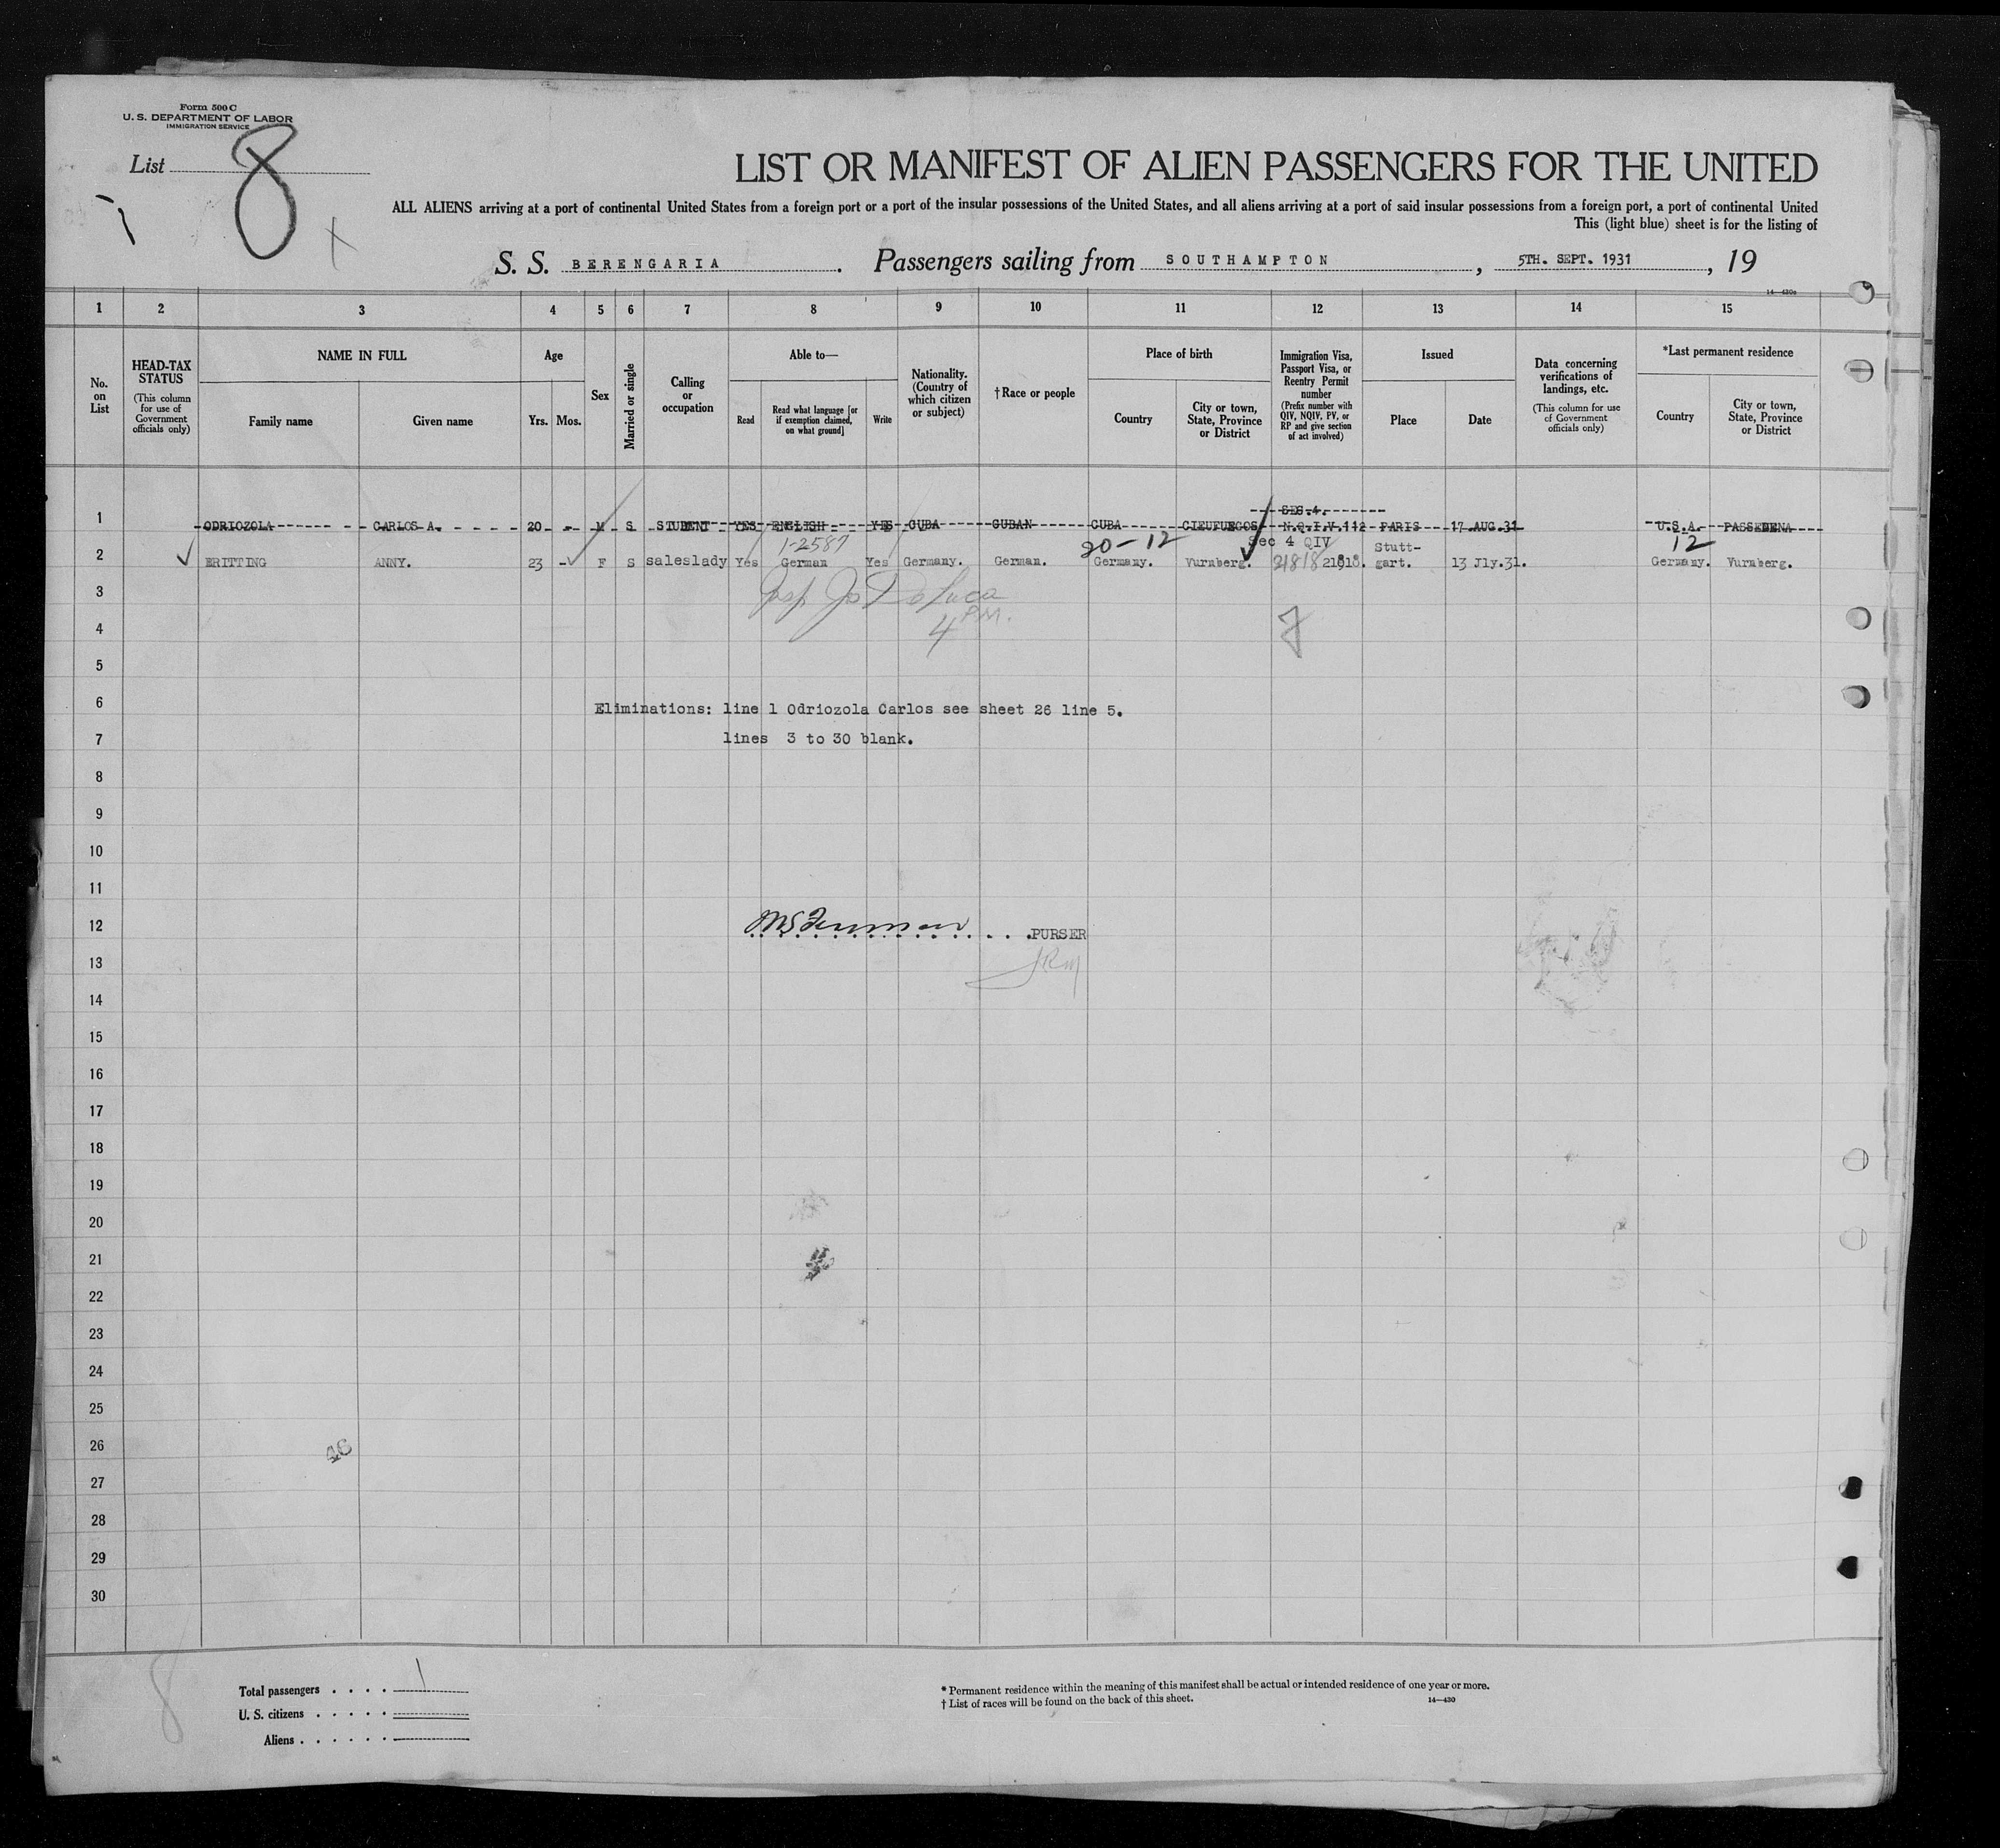 Form 500 C
U. S. DEPARTMENT OF LABOR
IMMIGRATION SERVICE
List 8
LIST OR MANIFEST OF ALIEN PASSENGERS FOR THE UNITED
ALL ALIENS arriving at a port of continental United States from a foreign port or a port of the insular possessions of the United States, and all aliens arriving at a port of said insular possessions from a foreign port, a port of continental United
This (light blue) sheet is for the listing of
S. S. BERENGARIA. Passengers sailing from SOUTHAMPTON, 5TH. SEPT. 1931, 19
14—430a
1 2 3 4 5 6 7 8 9 10 11 12 13 14 15
No. on List
HEAD-TAX STATUS (This column for use of Government officials only)
NAME IN FULL
Family name Given name
Age
Yrs. Mos.
Sex
Married or single
Calling or occupation
Able to—
Read Read what language [or if exemption claimed, on what ground] Write
Nationality. (Country of which citizen or subject)
†Race or people
Place of birth
Country City or town, State, Province or District
Immigration Visa, Passport Visa, or Reentry Permit number (Prefix number with QIV, NQIV, PV, or RP and give section of act involved)
Issued
Place Date
Data concerning verifications of landings, etc. (This column for use of Government officials only)
*Last permanent residence
Country City or town, State, Province or District
SES.4.
1 ODRIOZOLA CARLOS A. 20 - M S STUDENT YES ENGLISH YES CUBA CUBAN CUBA CIEUFUEGOS N.Q.I.V.112 PARIS 17 AUG.31 U.S.A. PASSEDENA
1-2587 20-12 Sec 4 QIV Stutt- 12
2 BRITTING ANNY. 23 - F S saleslady Yes German Yes Germany. German. Germany. Vurnberg. 21818 21818. gart. 13 Jly.31. Germany. Vurnberg.
3
4 4 PM.
5
6 Eliminations: line 1 Odriozola Carlos see sheet 26 line 5.
7 lines 3 to 30 blank.
8
9
10
11
12 PURSER
13
14
15
16
17
18
19
20
21
22
23
24
25
26 46
27
28
29
30
8
Total passengers . . . . 1
U. S. citizens . . . . .
Aliens . . . . . .
* Permanent residence within the meaning of this manifest shall be actual or intended residence of one year or more.
† List of races will be found on the back of this sheet. 14—430